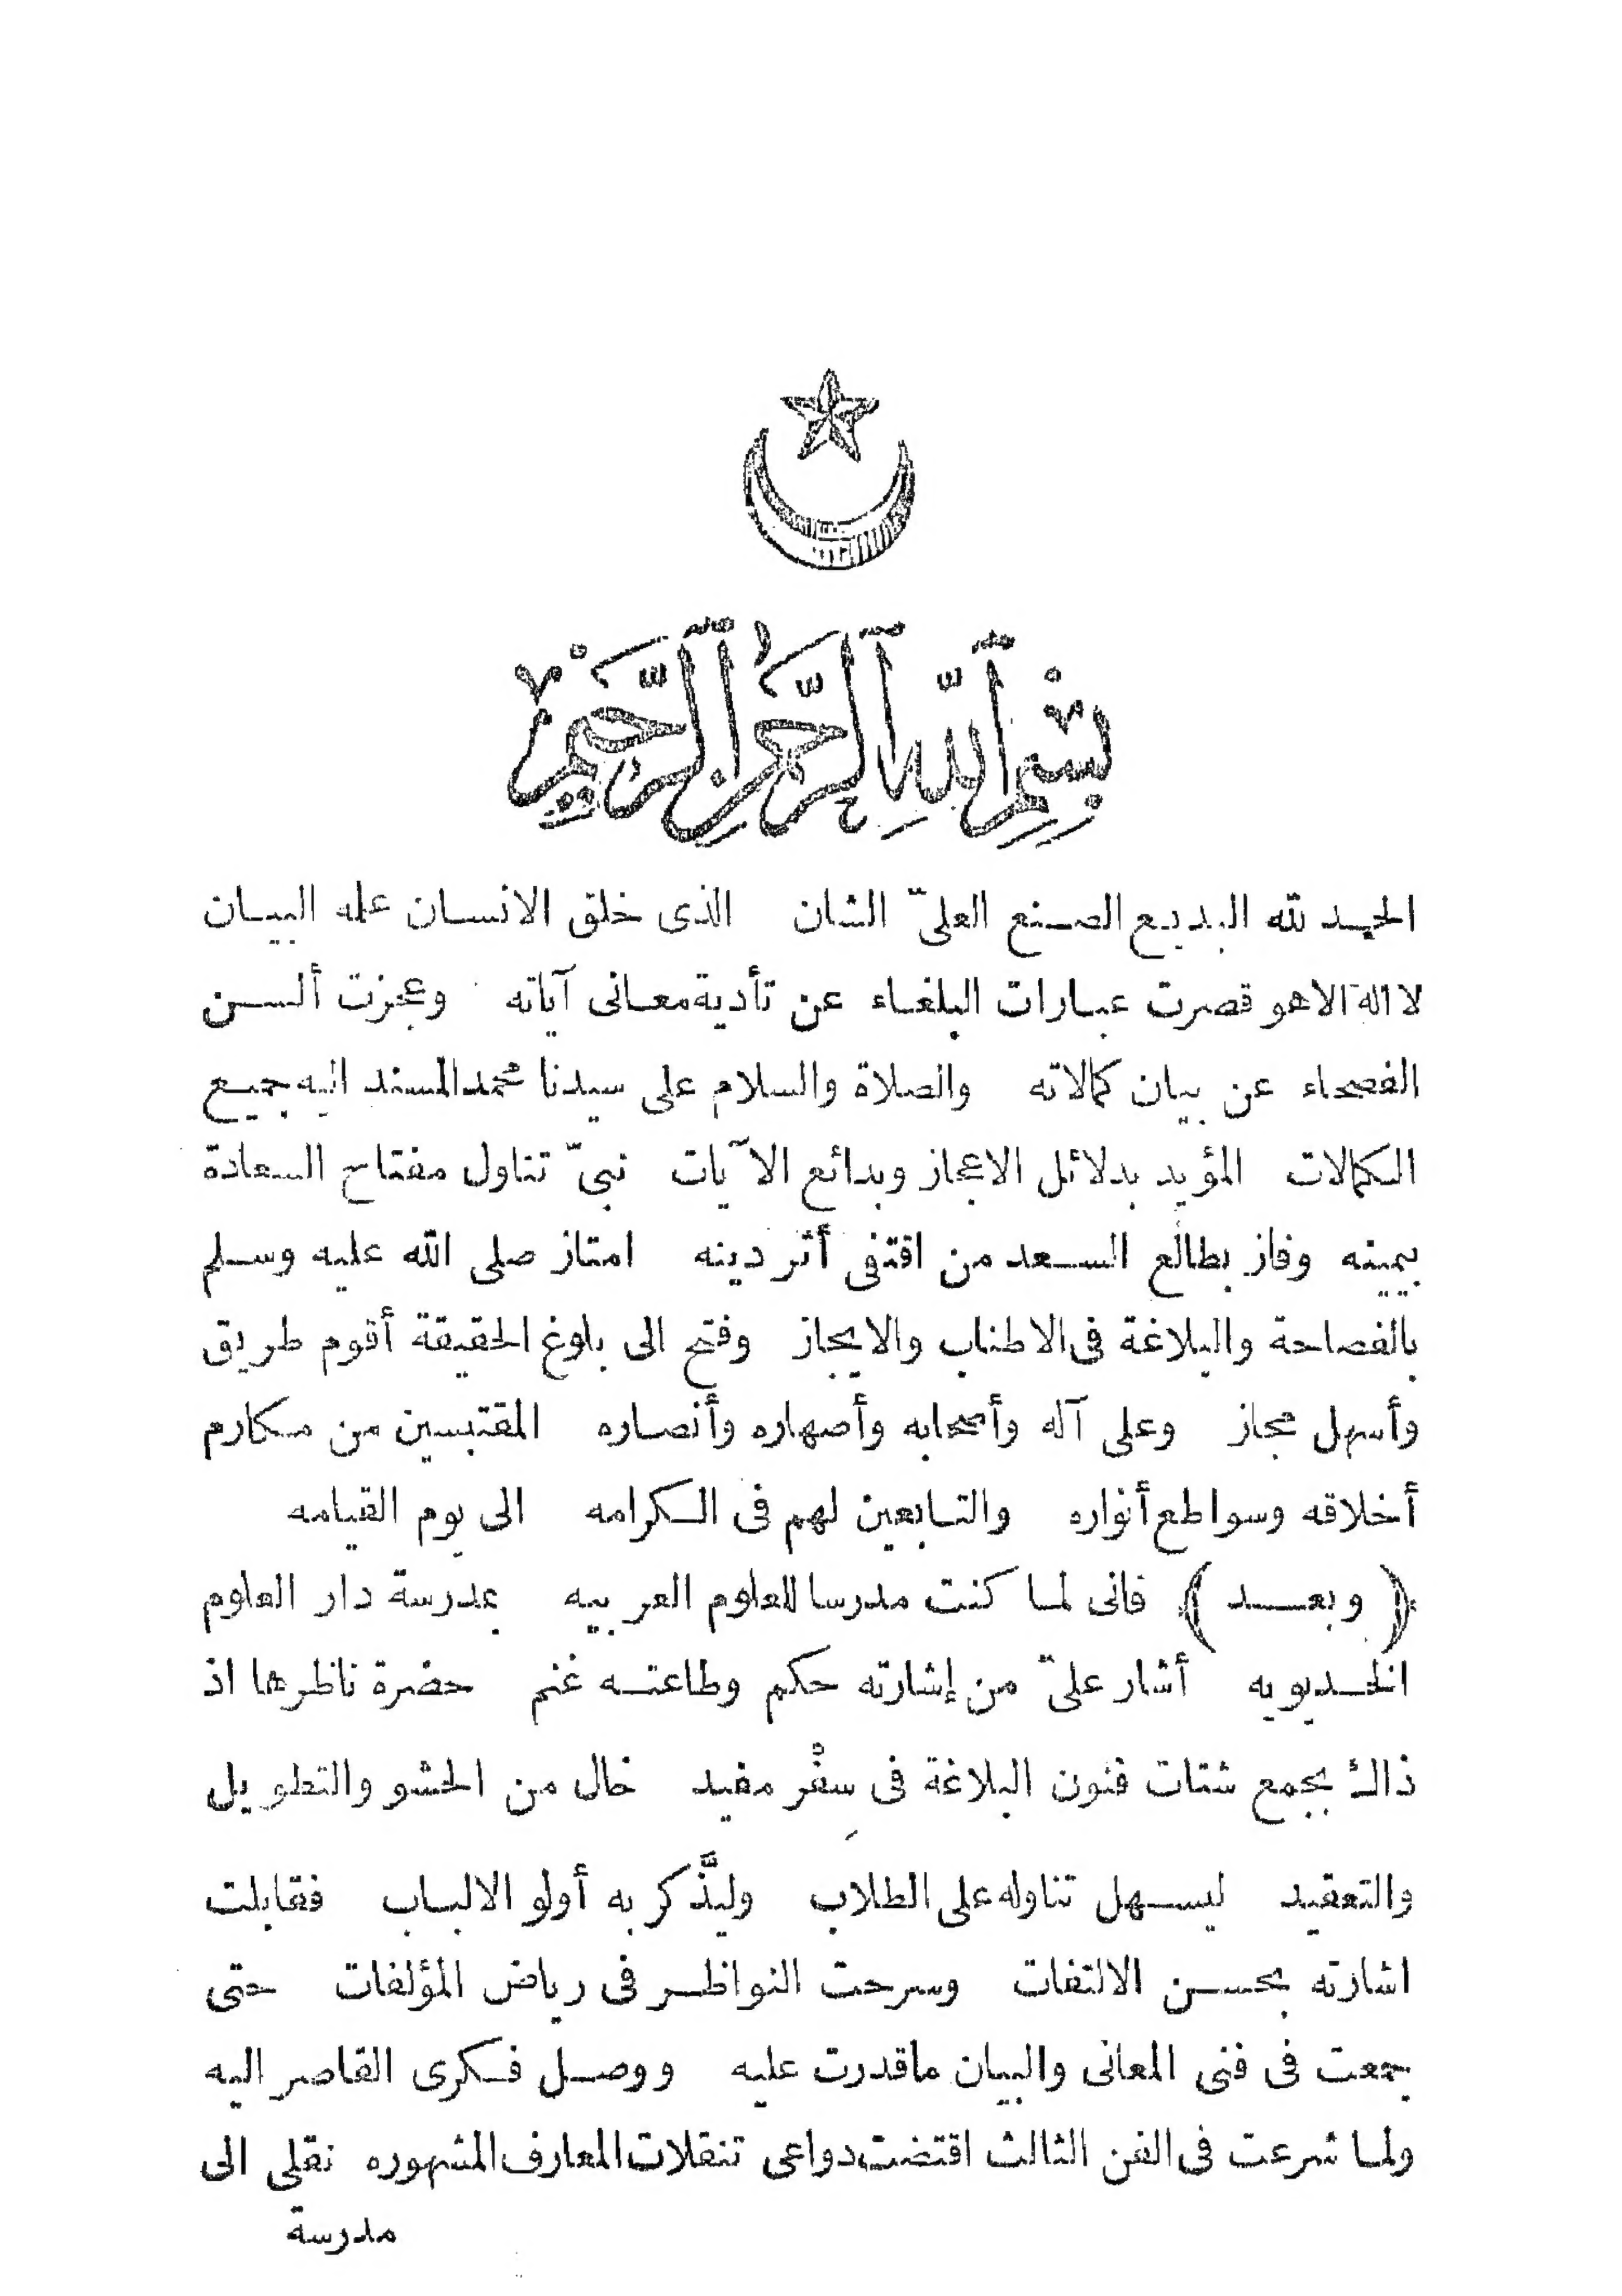 بِسْمِ ٱللَّهِ ٱلرَّحْمٰنِ ٱلرَّحِيمِ
الحمد لله البديع الصنع العلىّ الشان الذى خلق الانسان علمه البيان
لا اله الا هو قصرت عبارات البلغاء عن تأدية معانى آياته وعجزت ألسن
الفصحاء عن بيان كمالاته والصلاة والسلام على سيدنا محمد المسند اليه جميع
الكمالات المؤيد بدلائل الاعجاز وبدائع الآيات نبىّ تناول مفتاح السعادة
بيمينه وفاز بطالع السعد من اقتفى أثر دينه امتاز صلى الله عليه وسلم
بالفصاحة والبلاغة فى الاطناب والايجاز وفتح الى بلوغ الحقيقة أقوم طريق
وأسهل مجاز وعلى آله وأصحابه وأصهاره وأنصاره المقتبسين من مكارم
أخلاقه وسواطع أنواره والتابعين لهم فى الكرامه الى يوم القيامه
﴿ وبعد ﴾ فانى لما كنت مدرسا للعلوم العربيه بمدرسة دار العلوم
الخديويه أشار علىّ من إشارته حكم وطاعته غنم حضرة ناظرها اذ
ذاك بجمع شتات فنون البلاغة فى سِفْر مفيد خال من الحشو والتطويل
والتعقيد ليسهل تناوله على الطلاب وليذَّكر به أولو الالباب فقابلت
اشارته بحسن الالتفات وسرحت النواظر فى رياض المؤلفات حتى
جمعت فى فنى المعانى والبيان ماقدرت عليه ووصل فكرى القاصر اليه
ولما شرعت فى الفن الثالث اقتضت دواعى تنقلات المعارف المشهوره نقلى الى
مدرسة